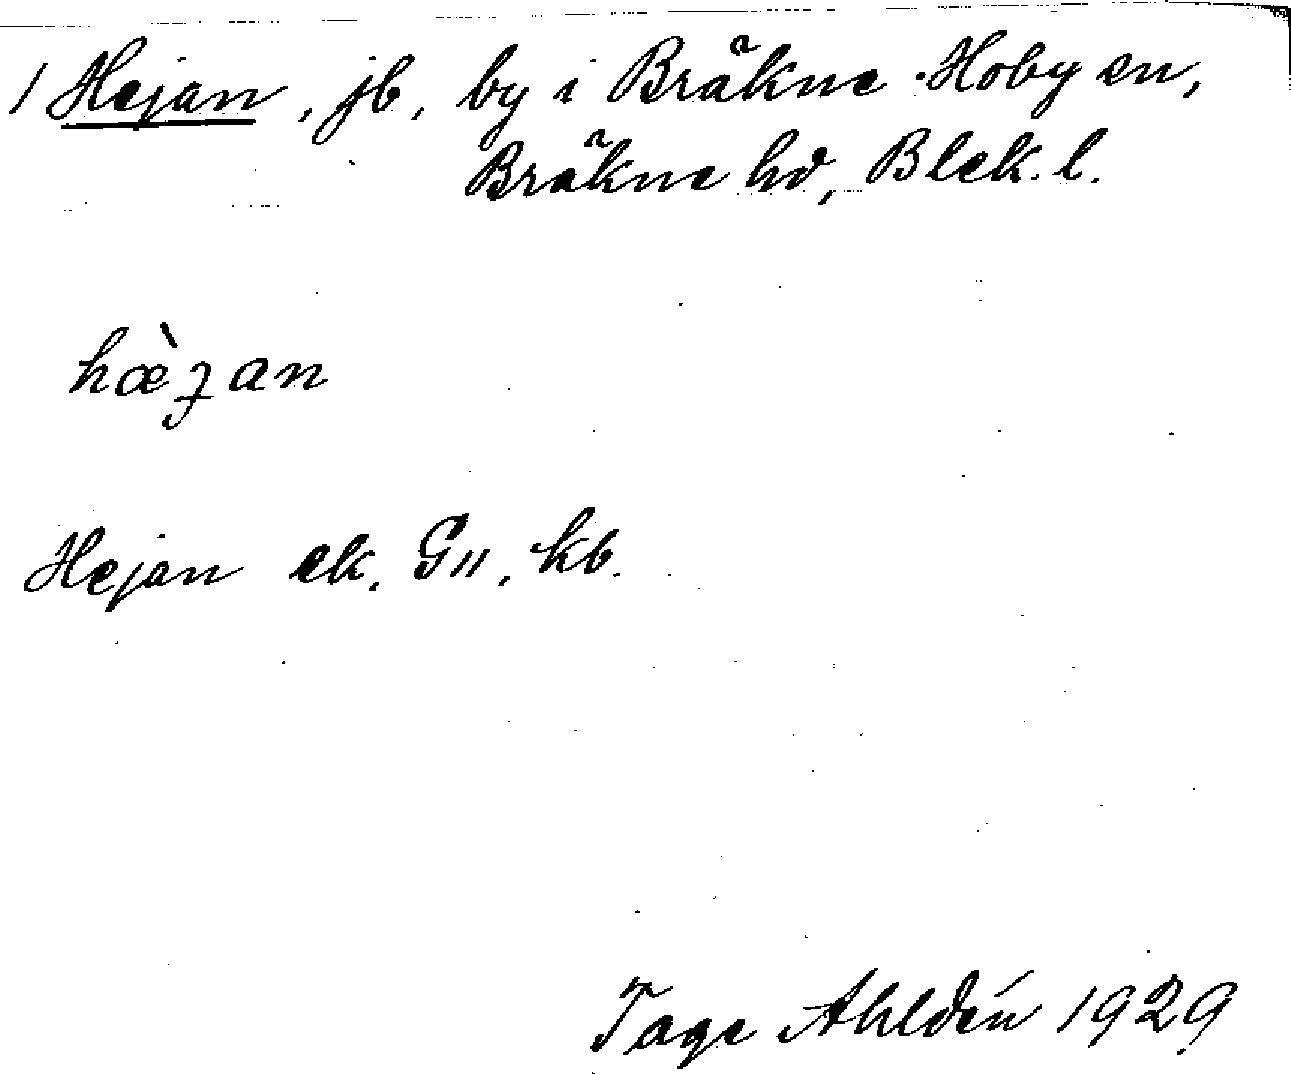 1 Hejan, jb, by i Bräkne-Hoby sn,
Bräkne hd, Blek. l.
hæ̀ȷan
Hejan ek. G11, kb.
Tage Ahldén 1929